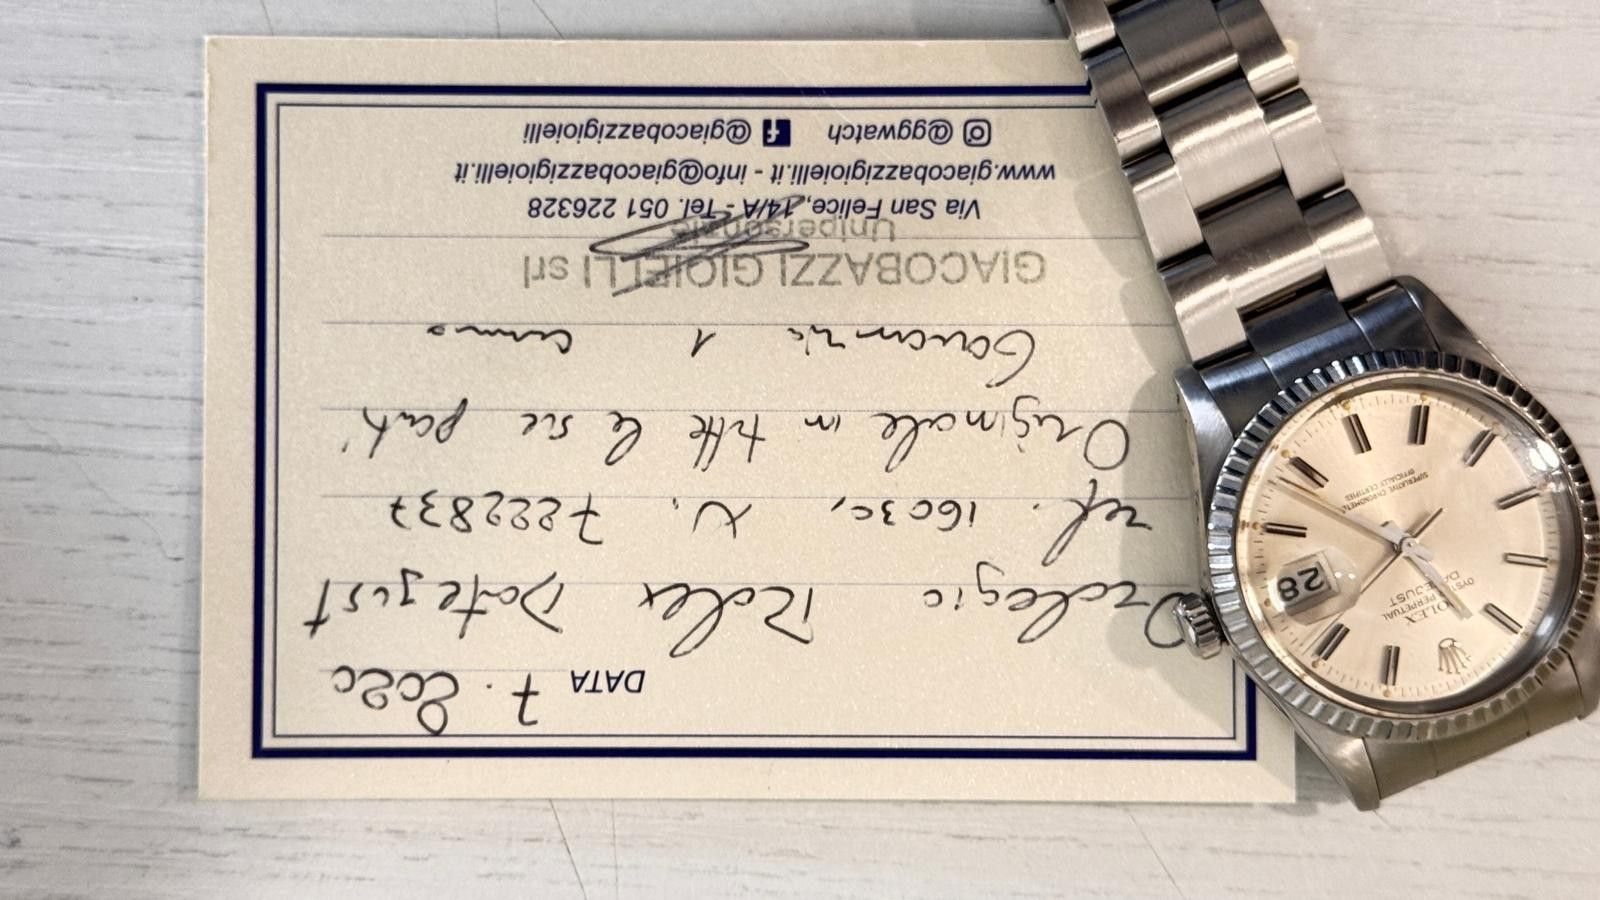 DATA 7.2020
Orologio Rolex Datejust
ref. 16030, N. 7222837
Originale in tutte le sue parti
Garanzia 1 anno
GIACOBAZZI GIOIELLI srl
Unipersonale
Via San Felice, 14/A - Tel. 051 226328
www.giacobazzigioielli.it - info@giacobazzigioielli.it
@ggwatch @giacobazzigioielli
ROLEX
OYSTER PERPETUAL
DATEJUST
28
SUPERLATIVE CHRONOMETER
OFFICIALLY CERTIFIED